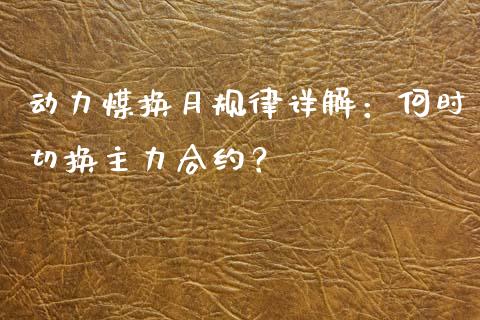 动力煤换月规律详解：何时
切换主力合约？